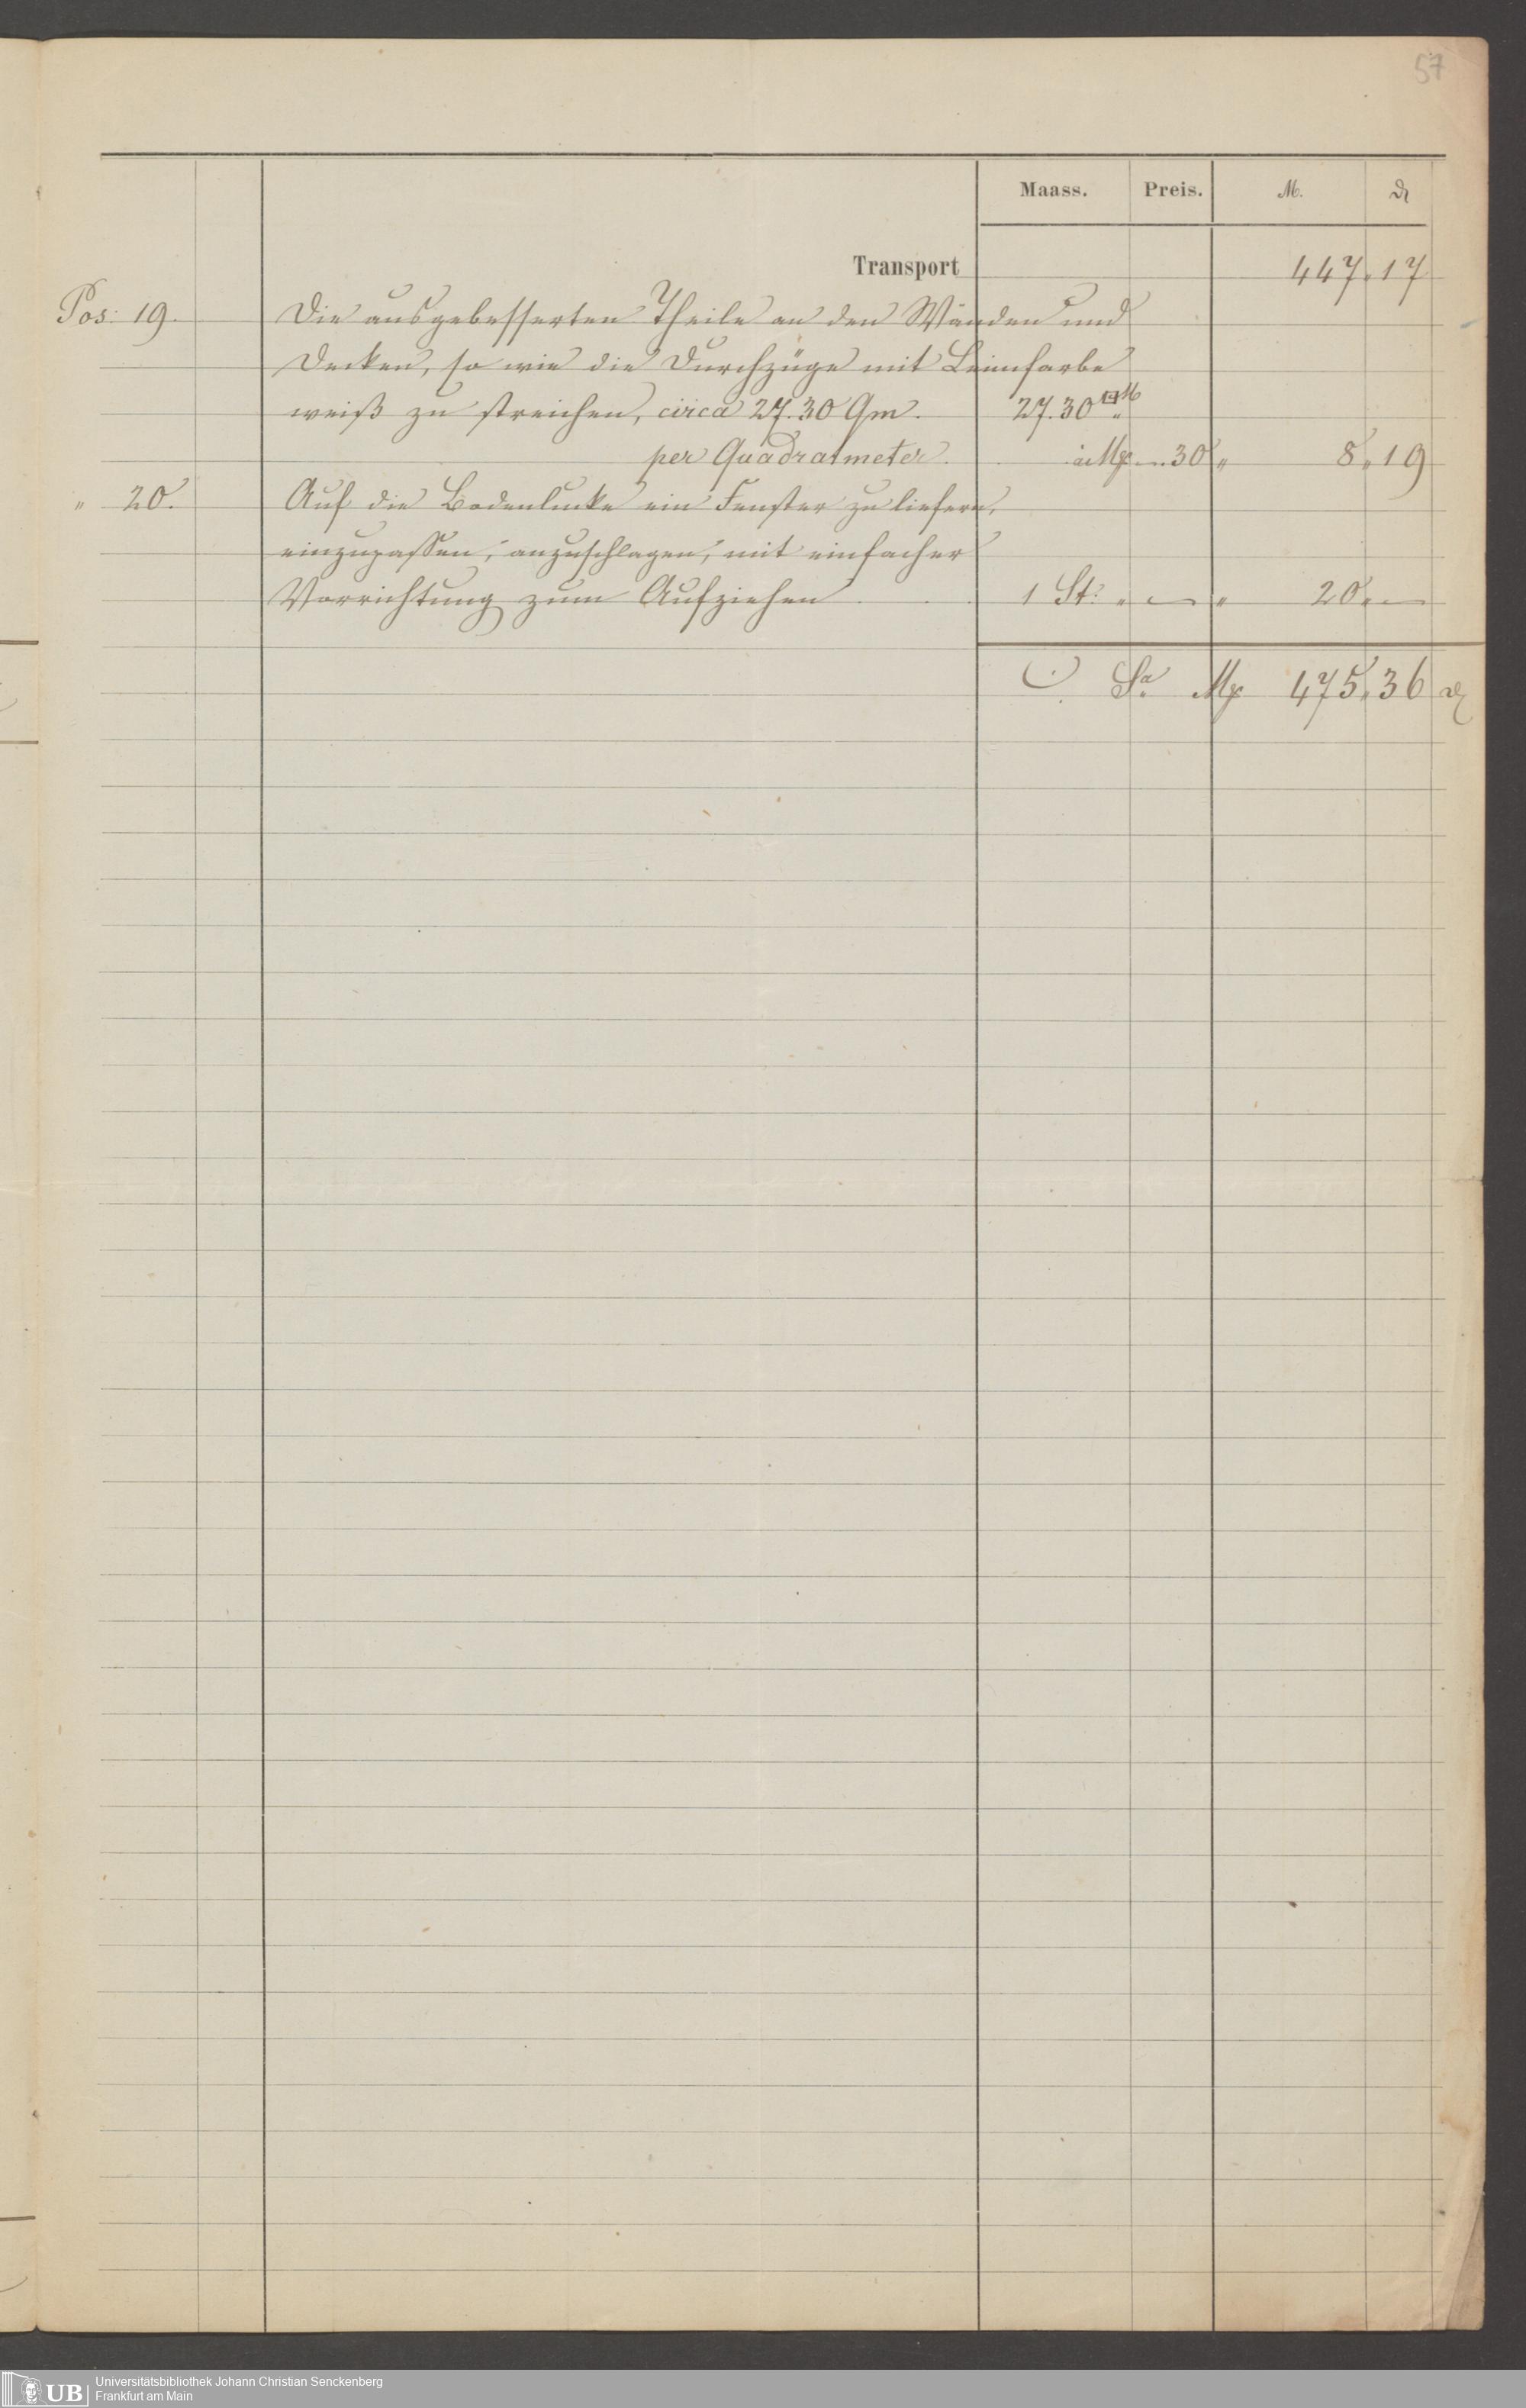 57
Maass. Preis. M. ₰
Transport 447 " 17
Pos: 19. Die ausgebesserten Theile an den Wänden und
Decken, so wie die Durchzüge mit Leimfarbe
weiß zu streichen, circa 27.30 Qm. 27.30 □M
per Quadratmeter. à Mk " 30 " 8 " 19
" 20. Auf die Bodenlucke ein Fenster zu liefern,
einzupassen, anzuschlagen, mit einfacher
Vorrichtung zum Aufziehen . . . 1 St: " — " 20 " —
Sa Mk 475 " 36 ₰
UB Universitätsbibliothek Johann Christian Senckenberg
Frankfurt am Main